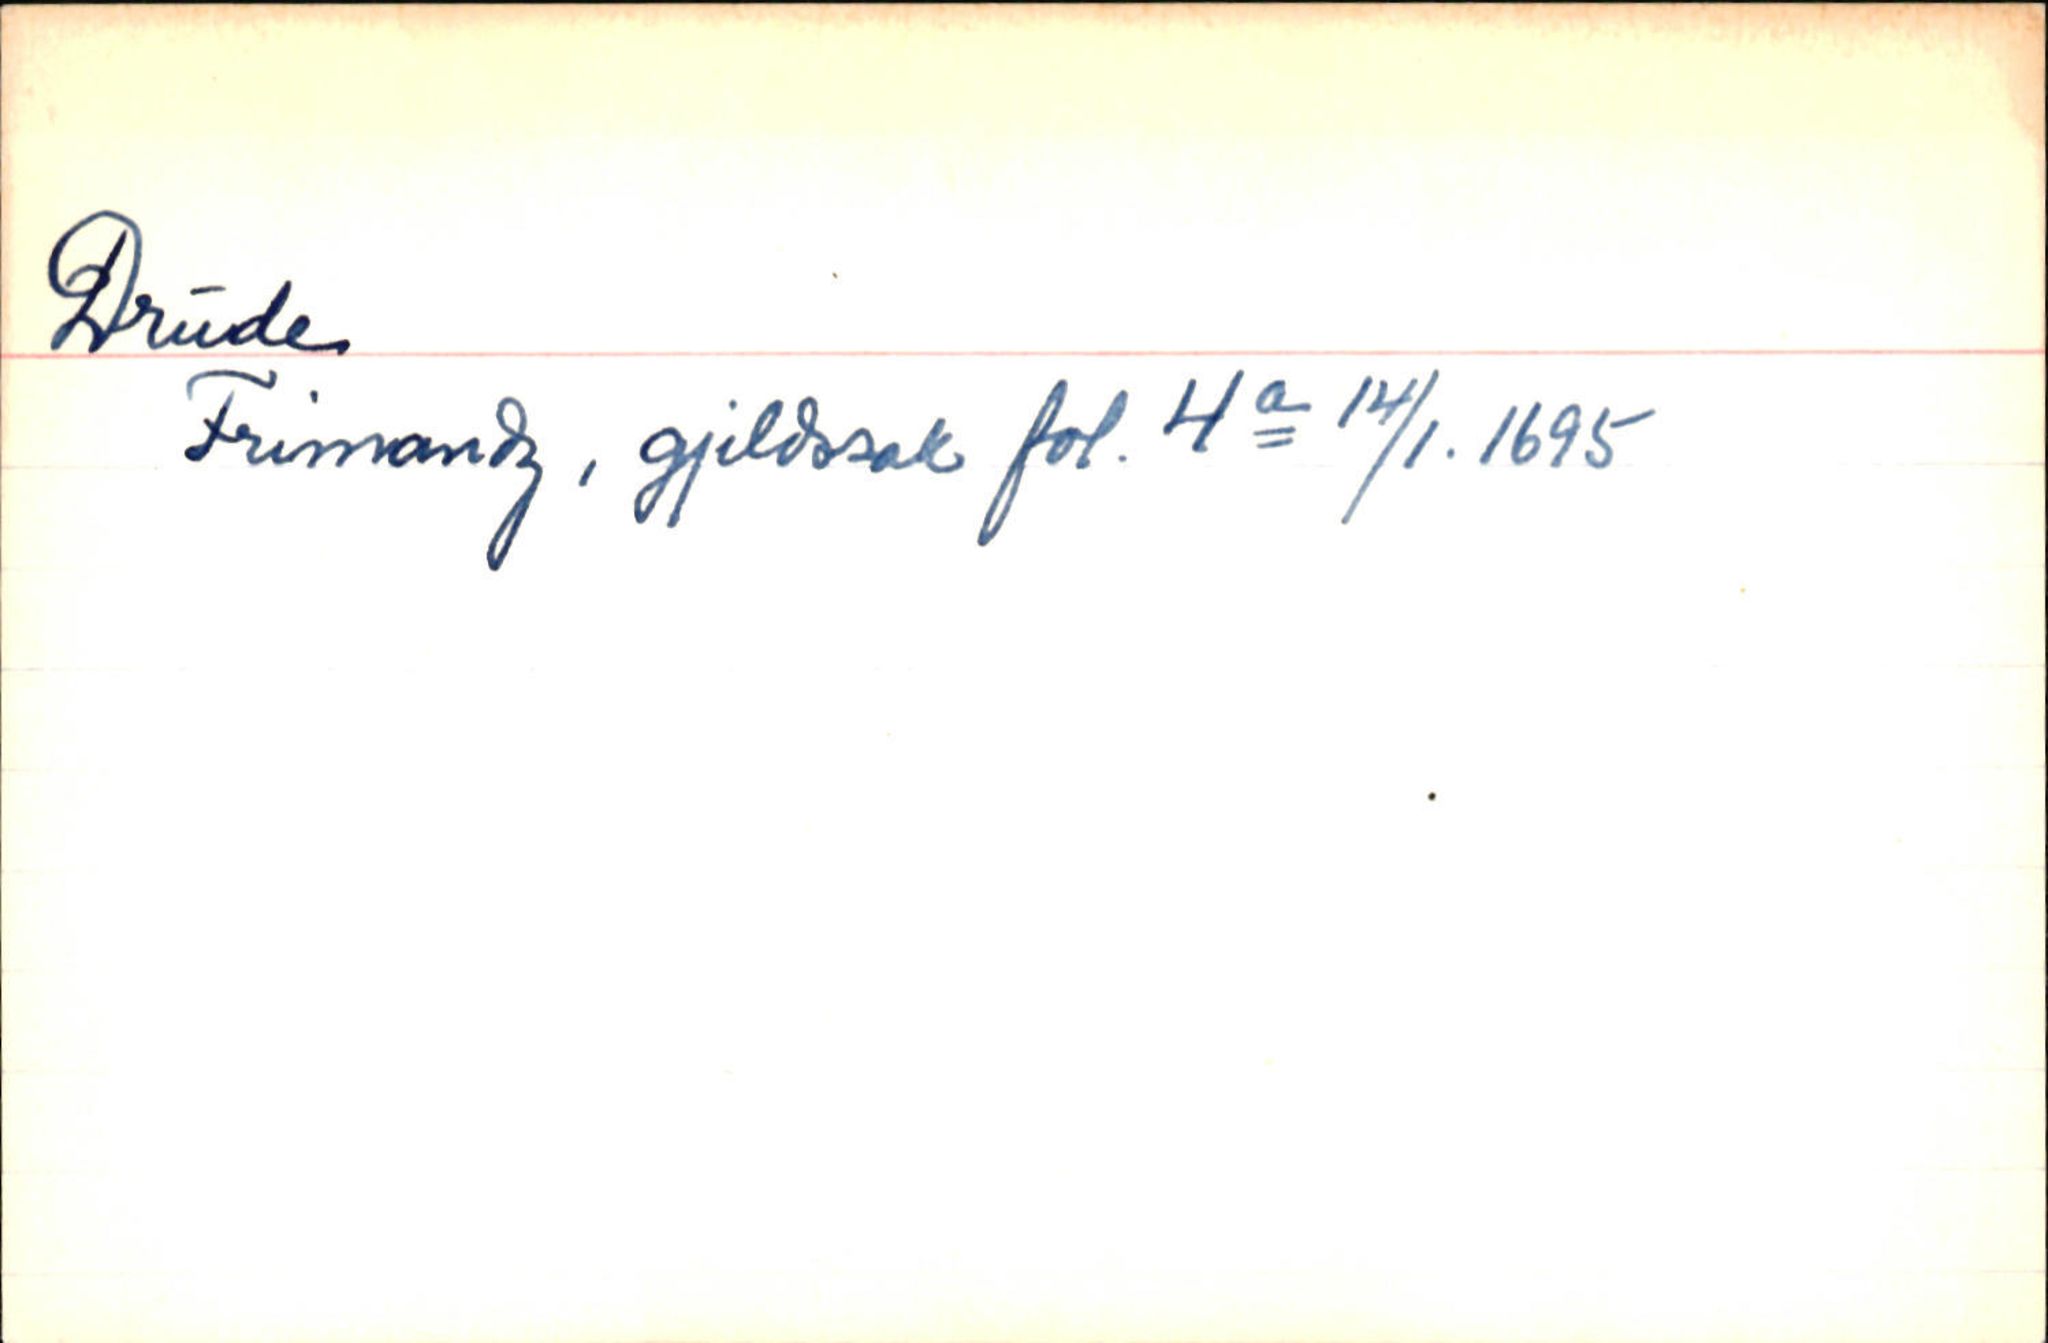 Drude
Frimandz, gjeldssak fol. 4a 14/1. 1695